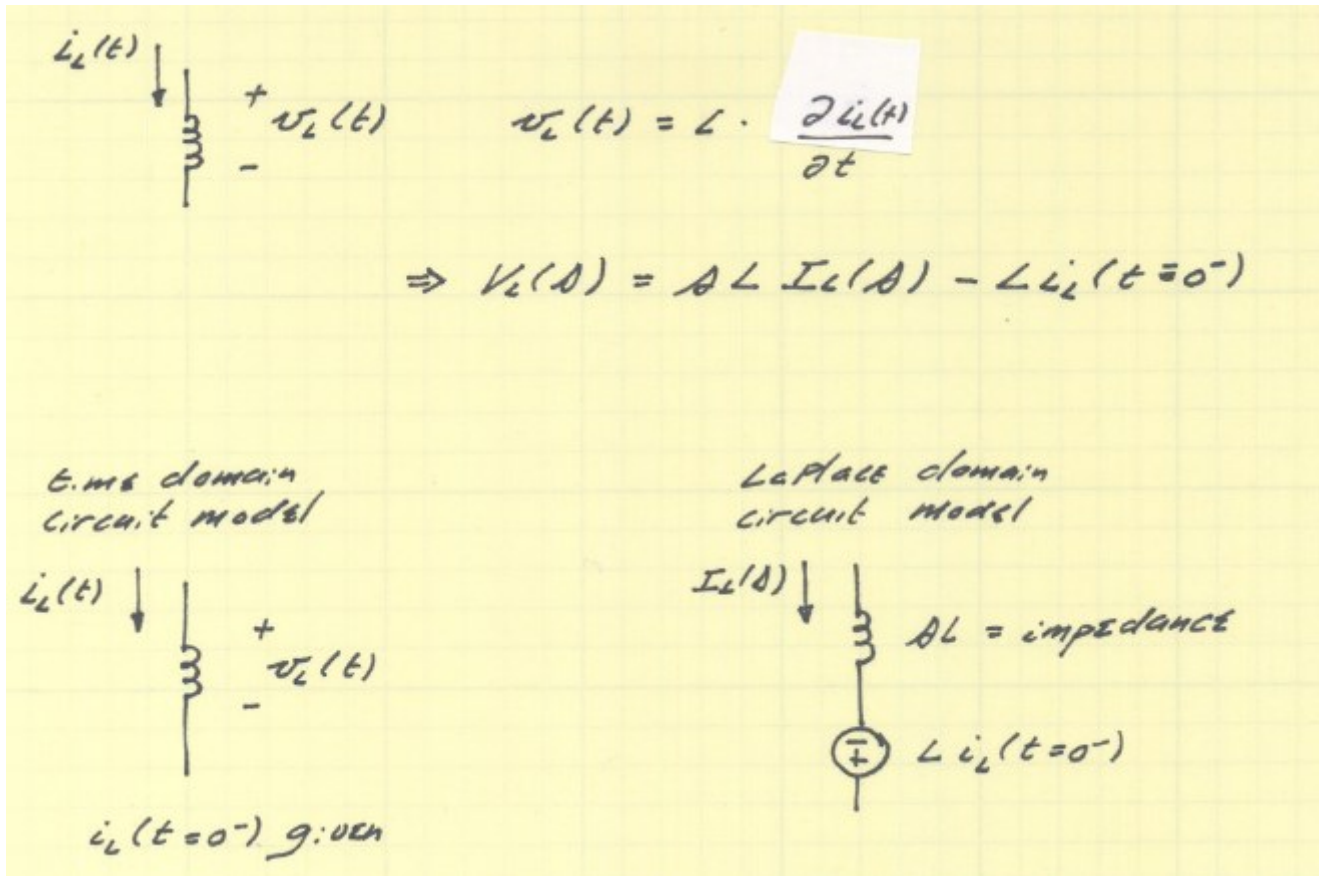 i_L(t)
+
v_L(t)
-
v_L(t) = L · ∂i_L(t)
∂t
⇒ V_L(s) = s L I_L(s) - L i_L(t=0⁻)
time domain
circuit model
i_L(t)
+
v_L(t)
-
i_L(t=0⁻) given
LaPlace domain
circuit model
I_L(s)
sL = impedance
- +
L i_L(t=0⁻)